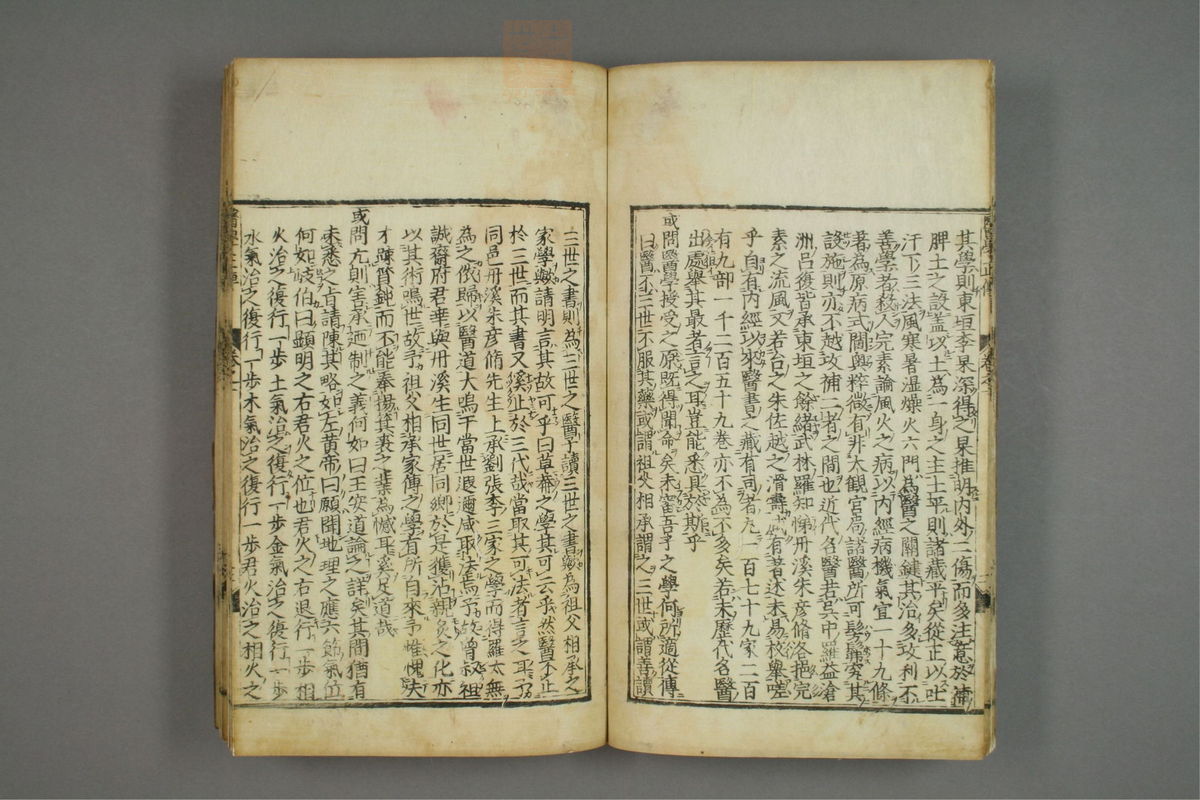 其學則東垣李杲深得之杲推明内外二傷而多注意於補
脾土之設蓋以土為一身之主土平則諸臟平矣從正以吐
汗下三法風寒暑湿燥火六門為醫之關鍵其治多攻利不
善學者殺人完素論風火之病以内經病機氣宜一十九條
著為原病式闡奥粹微有非太観官局諸醫所可髣髴究其
設施則亦不越攻補二者之間也近代名醫若吴中羅益滄
洲呂復皆承東垣之餘緒武林羅知悌丹溪朱彦脩各挹完
素之流風又若台之朱佐越之滑壽咸有著述未易枚舉嗟
乎自有内經以來醫書之藏有司者凡一百七十九家二百
有九部一千二百五十九巻亦不為不多矣若夫歴代名醫
出處舉其最者言之耳豈能悉具於斯乎
或問醫學授受之原既得聞命矣未審吾子之學何所適從傳
曰醫不三世不服其藥或謂祖父相承謂之三世或謂善讀
三世之書則為三世之醫子讀三世之書歟為祖父相承之
家學歟請明言其故可乎曰草菴之學其可云乎然醫不止
於三世而其書又奚止於三代哉當取其可法者言之耳予
同邑丹溪朱彦脩先生上承劉張李三家之學而得羅太無
為之依歸以醫道大鳴于當世遐邇咸取法焉予故曾叔祖
誠齋府君幸與丹溪生同世居同郷於是獲沾親炙之化亦
以其術鳴世故予祖父相承家傳之學有所自來予惟愧夫
才踈質鈍而不能奉揚其裘之業為憾耳奚足道哉
或問亢則害承廼制之義何如曰王安道論之詳矣其間猶有
未悉之旨請陳其略如左黄帝曰願聞地理之應六節氣位
何如岐伯曰顕明之右君火之位也君火之右退行一歩相
火治之復行一歩土氣治之復行一歩金氣治之復行一歩
水氣治之復行一歩木氣治之復行一歩君火治之相火之
醫學正傳
巻之一